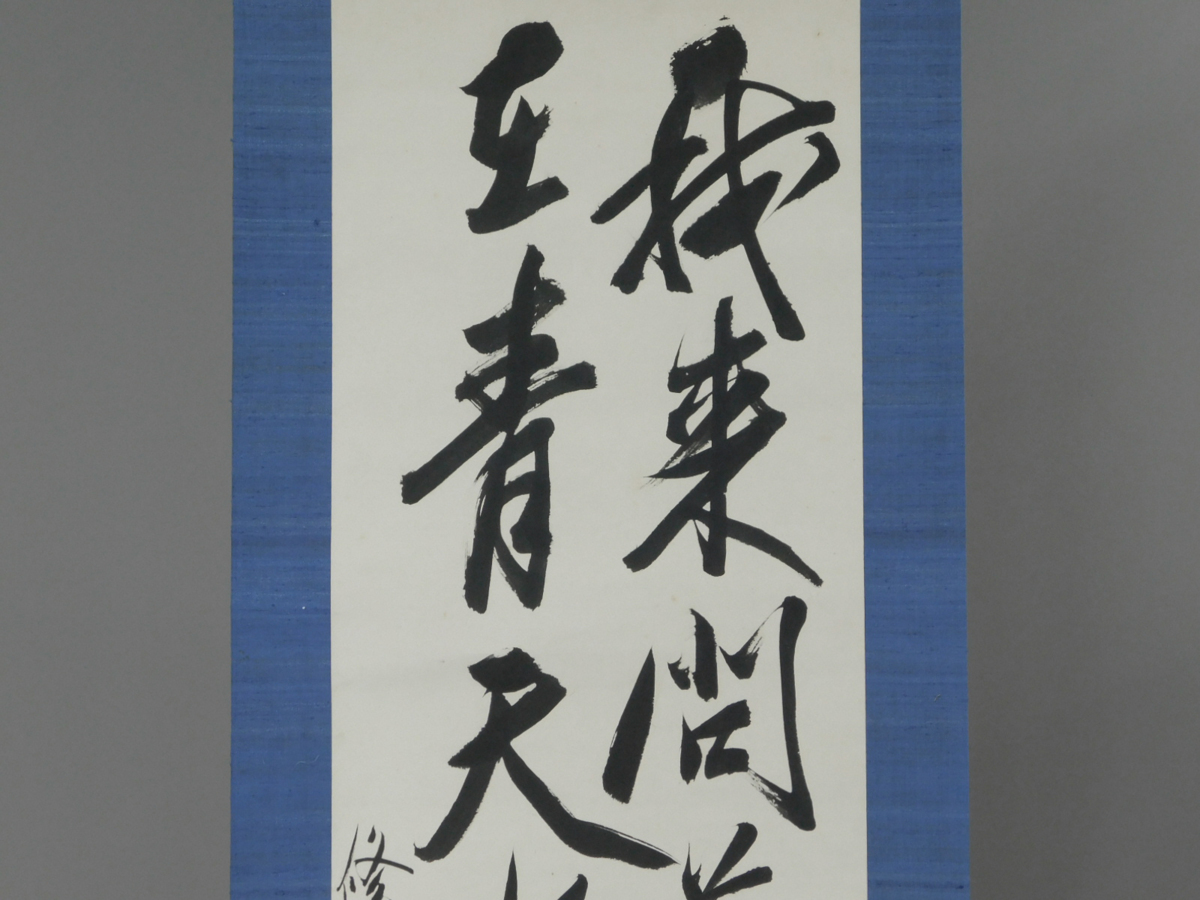 我来問
在青天
修